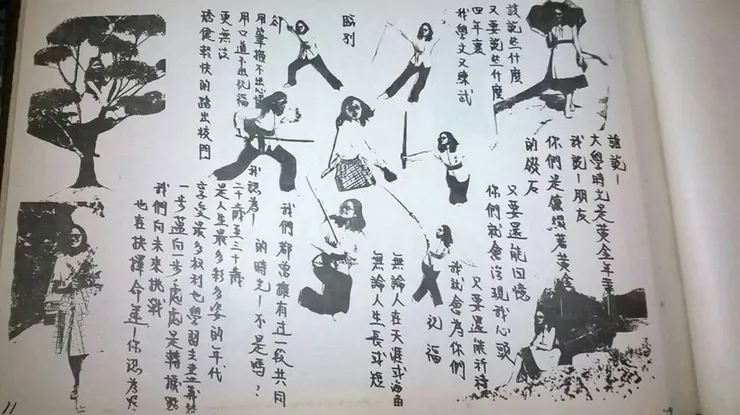 該說些什麼
又要說些什麼
四年裏
我學文又練武
臨別
卻
用筆描不出心
用口道不出祝福
更無法
矯健輕快的踏出校門
誰說—
大學時代是黃金年華
我說！朋友
你們是鑲綴著黃金
的鑽石
只要還能回憶
你們就會浮現我心頭
只要還能祈禱
我就會為你們
祝福
無論人在天涯或海角
無論人生長或短
我們都當擁有過一段共同
的時光！不是嗎？
我認為！
二十歲至三十歲
是人生最多彩多姿的年代
享受最多權利也學習主宰
一步邁向一步處處是轉捩點
我們向未來挑戰
也在抉擇命運！你認為呢
11